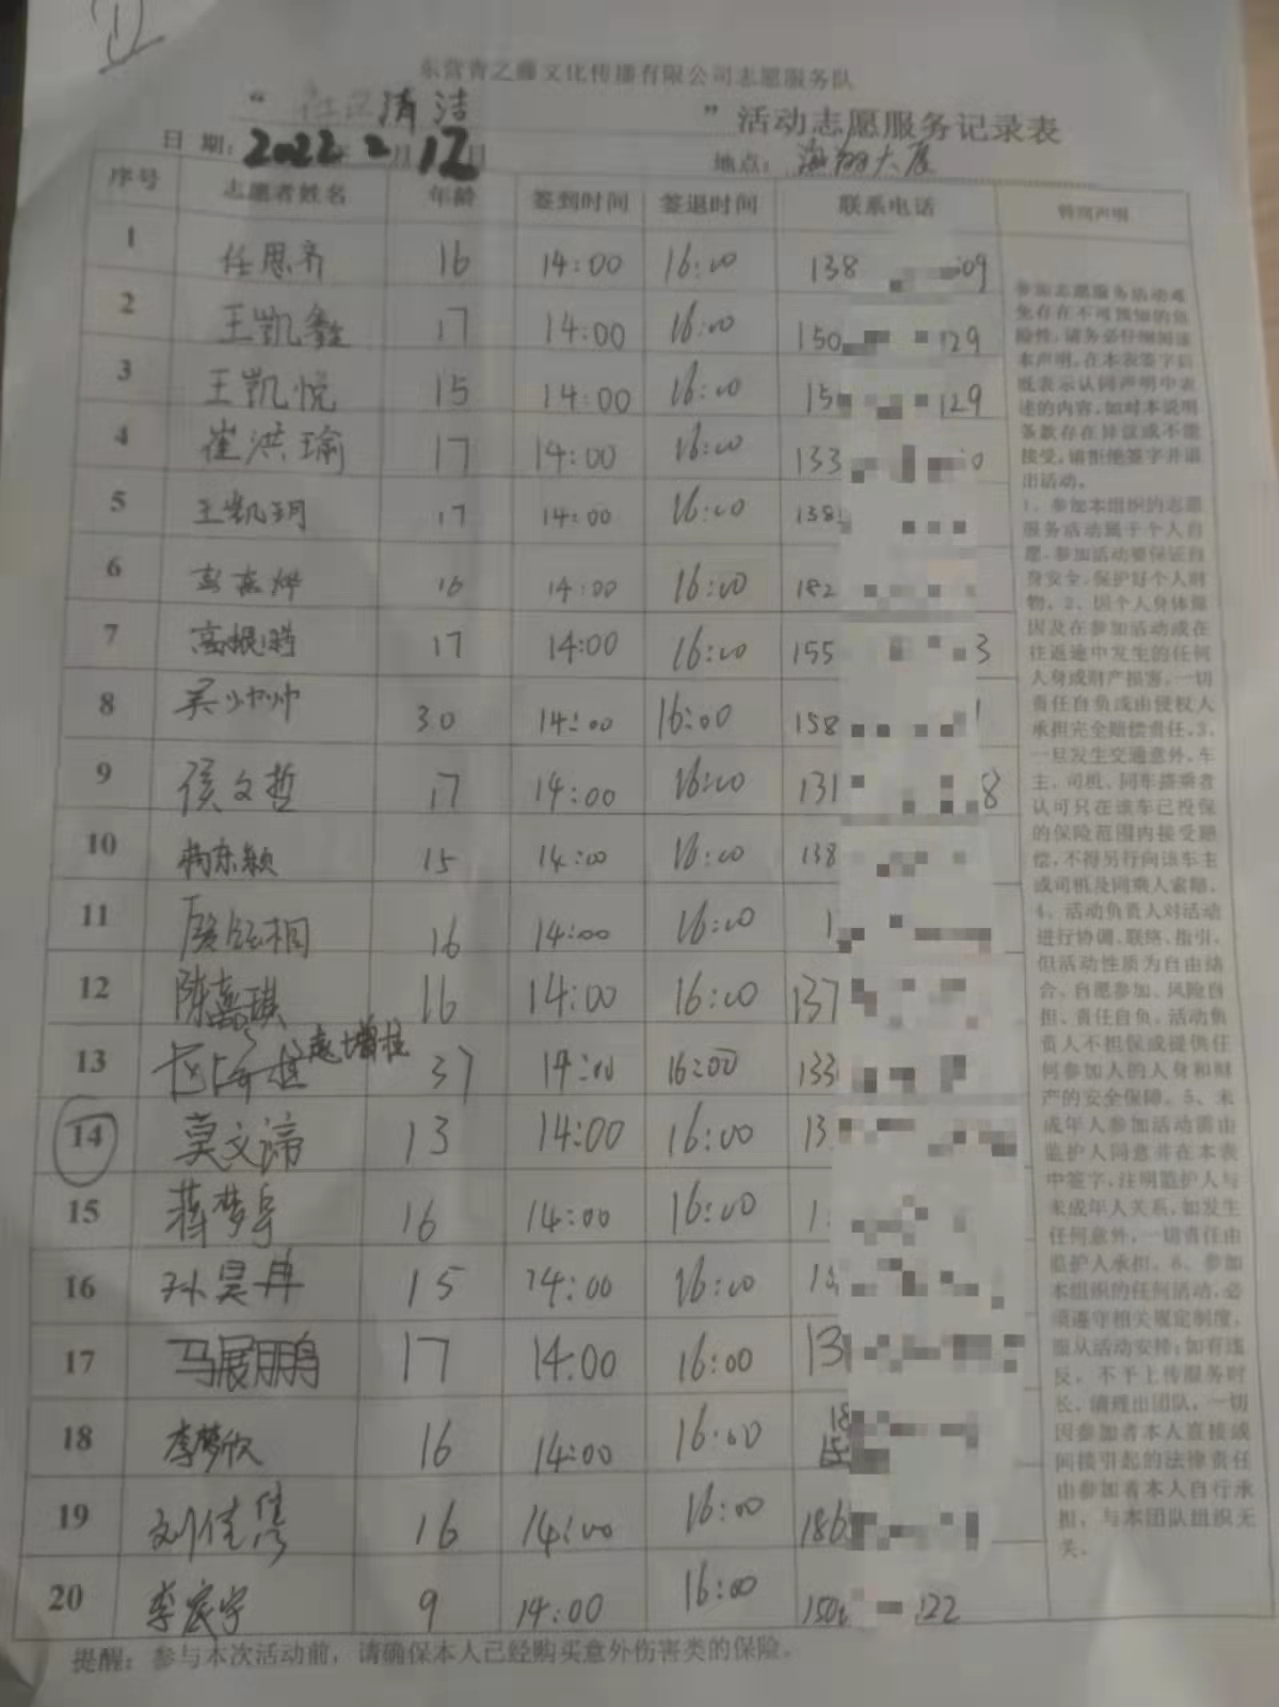 ①
东营青之藤文化传播有限公司志愿服务队
“社区清洁”活动志愿服务记录表
日期：2022年2月12日 地点：海翔大厦
序号 志愿者姓名 年龄 签到时间 签退时间 联系电话 特别声明
1 任思齐 16 14:00 16:00 138 09
2 王凯 17 14:00 16:00 150 129
3 王凯悦 15 14:00 16:00 15 129
4 崔洪瑜 17 14:00 16:00 133 0
5 王凯玥 17 14:00 16:00 138
6 彭 烨 16 14:00 16:00 182
7 高 17 14:00 16:00 155 3
8 吴帅帅 30 14:00 16:00 158 1
9 侯文哲 17 14:00 16:00 131 8
10 颖 15 14:00 16:00 138
11 桐 16 14:00 16:00 1
12 陈嘉琪 16 14:00 16:00 137
13 赵增柱 37 14:00 16:00 133
14 莫文谛 13 14:00 16:00 13
15 蒋梦 16 14:00 16:00 1
16 孙昊冉 15 14:00 16:00 1
17 马展鹏 17 14:00 16:00 13
18 李梦欣 16 14:00 16:00 18 15
19 刘佳 16 14:00 16:00 186
20 李宸宇 9 14:00 16:00 150 122
参加志愿服务活动难
免存在不可预知的危
险性，请务必仔细阅读
本声明，在本表签字后
既表示认同声明中表
述的内容，如对本说明
条款存在异议或不能
接受，请拒绝签字并退
出活动。
1、参加本组织的志愿
服务活动属于个人自
愿，参加活动要保证自
身安全，保护好个人财
物。2、因个人身体原
因及在参加活动或在
往返途中发生的任何
人身或财产损害，一切
责任自负或由侵权人
承担完全赔偿责任。3、
一旦发生交通意外，车
主、司机、同车搭乘者
认可只在该车已投保
的保险范围内接受赔
偿，不得另行向该车主
或司机及同乘人索赔。
4、活动负责人对活动
进行协调、联络、指引，
但活动性质为自由结
合、自愿参加、风险自
担、责任自负。活动负
责人不担保或提供任
何参加人的人身和财
产的安全保障。5、未
成年人参加活动需由
监护人同意并在本表
中签字，注明监护人与
未成年人关系，如发生
任何意外，一切责任由
监护人承担。6、参加
本组织的任何活动，必
须遵守相关规定制度，
服从活动安排；如有违
反，不予上传服务时
长，清理出团队，一切
因参加者本人直接或
间接引起的法律责任
由参加者本人自行承
担，与本团队组织无
关。
提醒：参与本次活动前，请确保本人已经购买意外伤害类的保险。